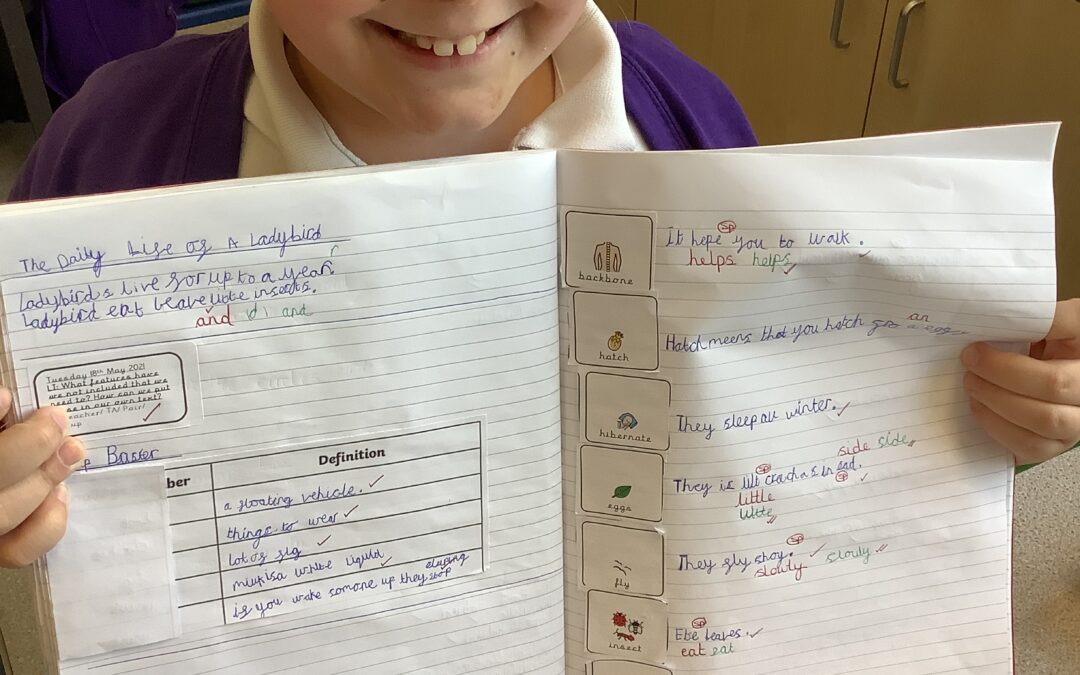 The Daily Life of A Ladybird
Ladybirds live for up to a year.
Ladybird eat leave insects.
and and
Tuesday 18th May 2021
LT: What features have
we not included that we
need to? How can we put
in our own text?
eacher/ TA/ Pair/
up
Baster
ber Definition
a floating vehicle.
things to wear
lot of
milk is a white liquid
if you wake somone up they stop
backbone
sp
It hepe you to walk.
helps helps
hatch
an
Hatch meens that you hatch a egg
hibernate
They sleep all winter.
side side
eggs
sp
They is in sad.
sp
little
fly
sp
They fly sloy.
slowly slowly
insect
sp
Ete leaves.
eat eat